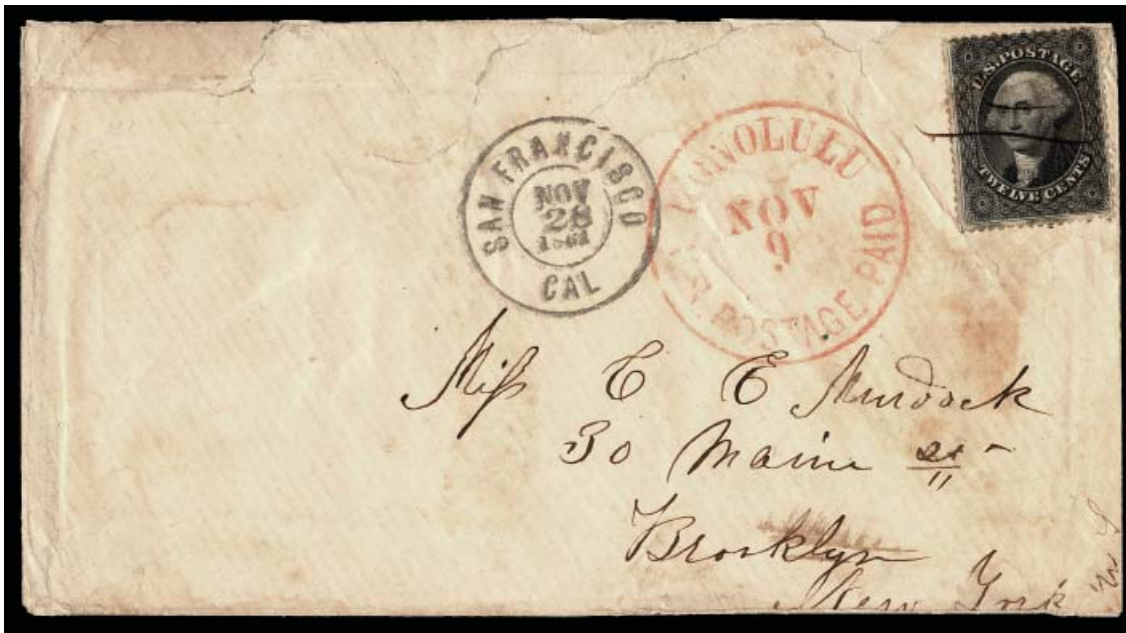 U.S. POSTAGE
TWELVE CENTS
SAN FRANCISCO
NOV
28
1861
CAL
HONOLULU
NOV
9
U.S. POSTAGE PAID
Miss C E Murdock
30 Main st
Brooklyn
New York